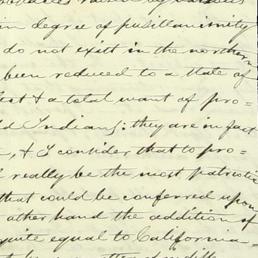 in degree of pusillanimity
do not exist in the northern
been reduced to a state of
& a total want of pro-
Indians; they are in fact
, & I consider that to pro-
really be the most patriotic
that could be conferred upon
other hand the addition of
quite equal to California